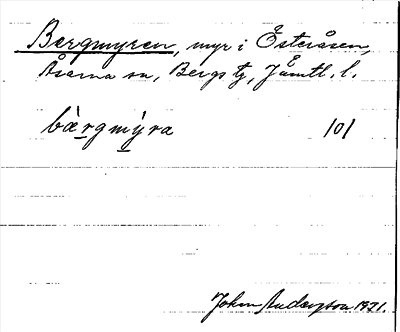 Bergmyren, myr i Österåsen,
Åsarna sn, Bergs tg, Jämtl. l.
bàrgmýra 101
John Andersson 1931.